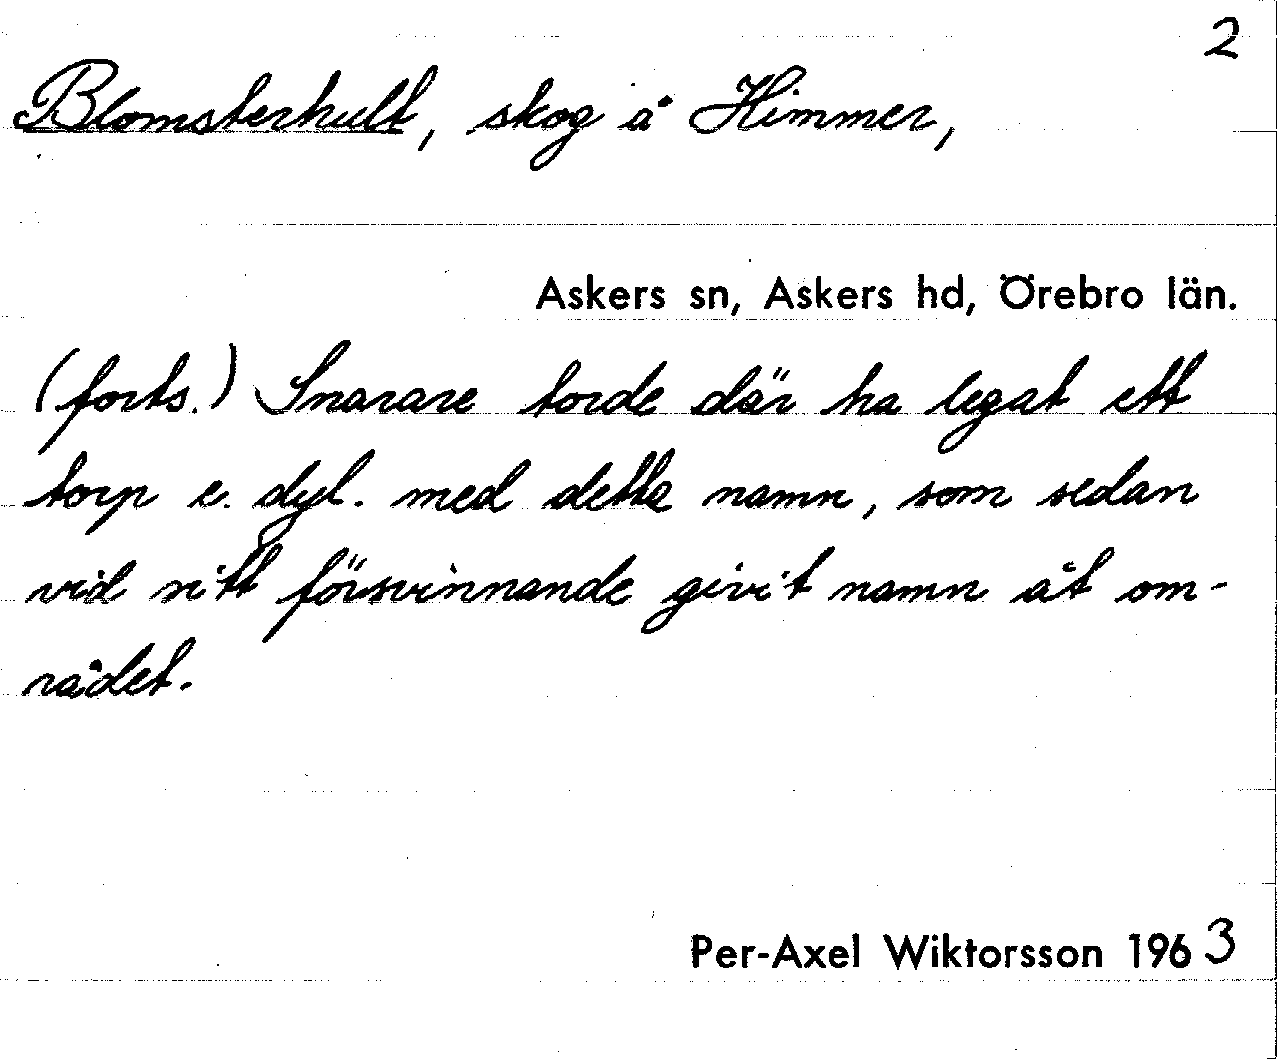 2
Blomsterhult, skog å Himmer,
Askers sn, Askers hd, Örebro län.
(forts.) Snarare torde där ha legat ett
torp e. dyl. med detta namn, som sedan
vid sitt försvinnande givit namn åt om-
rådet.
Per-Axel Wiktorsson 1963